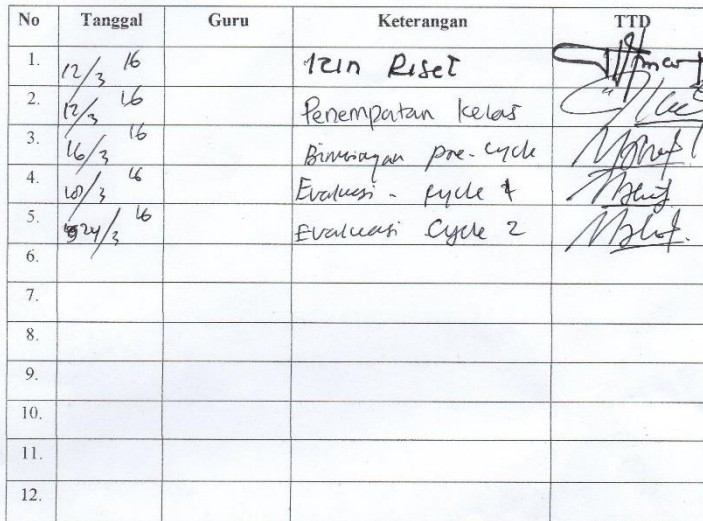 No Tanggal Guru Keterangan TTD
1. 12/3 16 Izin Riset
2. 12/3 16 Penempatan kelas
3. 16/3 16 Bimbingan pre-cycle
4. 18/3 16 Evaluasi - cycle 1
5. 24/3 16 Evaluasi Cycle 2
6.
7.
8.
9.
10.
11.
12.